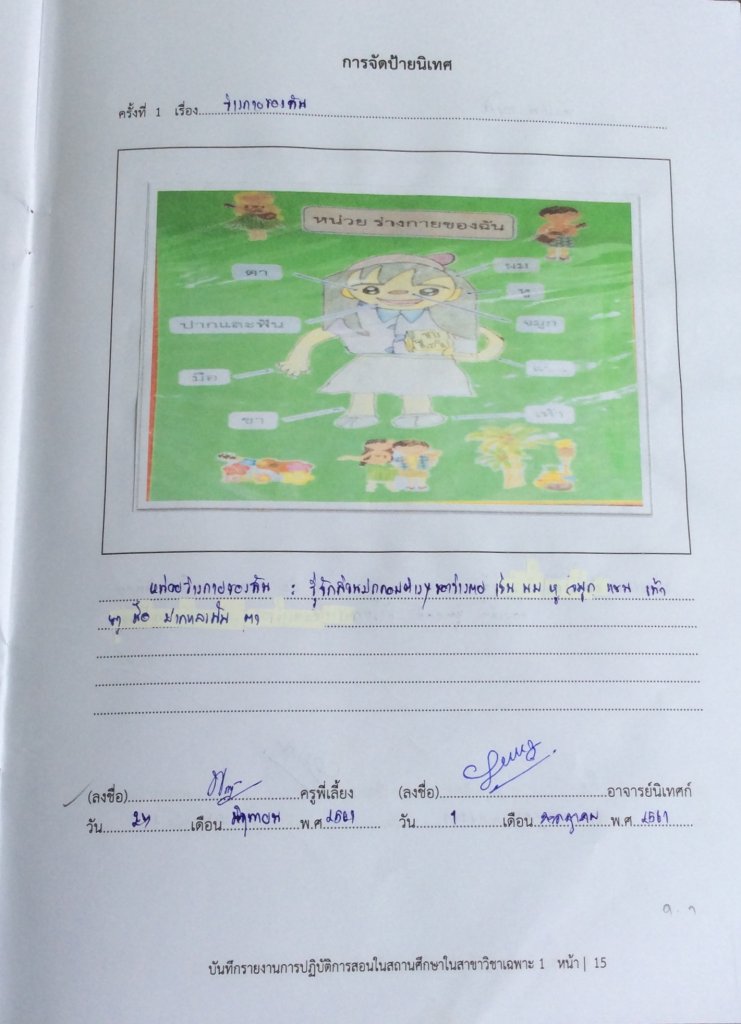 การจัดป้ายนิเทศ
ครั้งที่ 1 เรื่อง ร่างกายของฉัน
หน่วย ร่างกายของฉัน
ตา
ผม
หู
ปากและฟัน
จมูก
มือ
ขา
เท้า
หน่วยร่างกายของฉัน : รู้จักส่วนประกอบต่างๆ ของร่างกาย เช่น ผม หู จมูก แขน เท้า
ขา มือ ปากและฟัน ตา
(ลงชื่อ) ครูพี่เลี้ยง (ลงชื่อ) อาจารย์นิเทศก์
วัน เดือน มิถุนายน พ.ศ 2561 วัน 1 เดือน กรกฎาคม พ.ศ 2561
บันทึกรายงานการปฏิบัติการสอนในสถานศึกษาในสาขาวิชาเฉพาะ 1 หน้า | 15